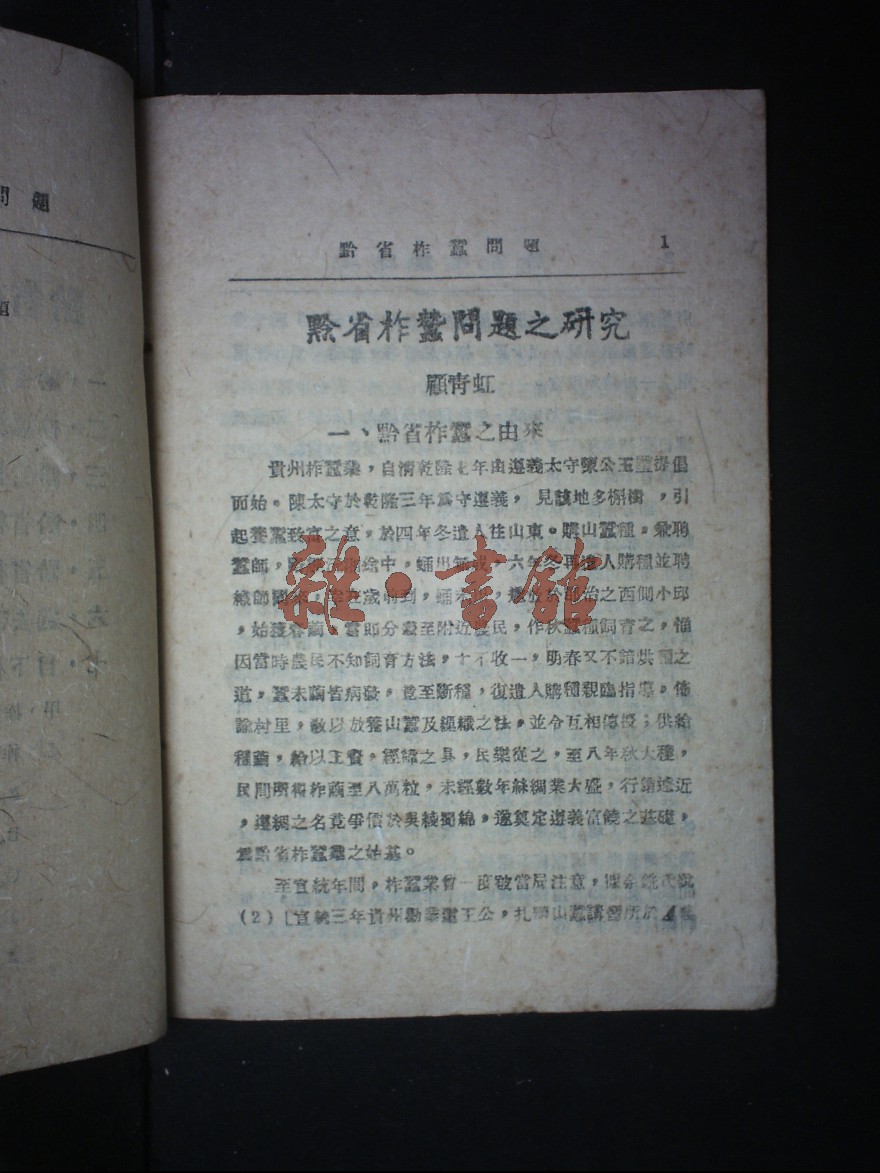 問題
黔省柞蠶問題 1
黔省柞蠶問題之研究
顧青虹
一、黔省柞蠶之由來
貴州柞蠶業，自清乾隆七年由遵義太守陳公玉璧提倡
而始。陳太守於乾隆三年為守遵義，見該地多槲樹，引
起養蠶致富之意，於四年冬遣人往山東。購山蠶種，兼聘
蠶師，中途，蛹出無成，六年冬再遣人購種並聘
織師，歲前到，蛹之西側小邱
，始獲春繭，當即分發至附近農民，作秋蠶種飼育之，惜
因當時農民不知飼育方法，十不收一，明春又不諳烘種之
道，蠶未繭皆病發，竟至斷種，復遣人購種親臨指導，佈
諭村里，教以放養山蠶及繅織之法，並令互相傳授；供給
種繭，給以工資，經緯之具，民樂從之，至八年秋大種，
民間所得柞繭至八萬粒，未經數年絲綢業大盛，行銷遠近
，遵綢之名竟爭價於吳綾蜀綿，遂奠定遵義富饒之基礎，
為黔省柞蠶業之始基。
至宣統年間，柞蠶業曾一度致當局注意，據余銑氏載
(2)［宣統三年貴州勸業道王公，扎山蠶講習所於
雜·書館